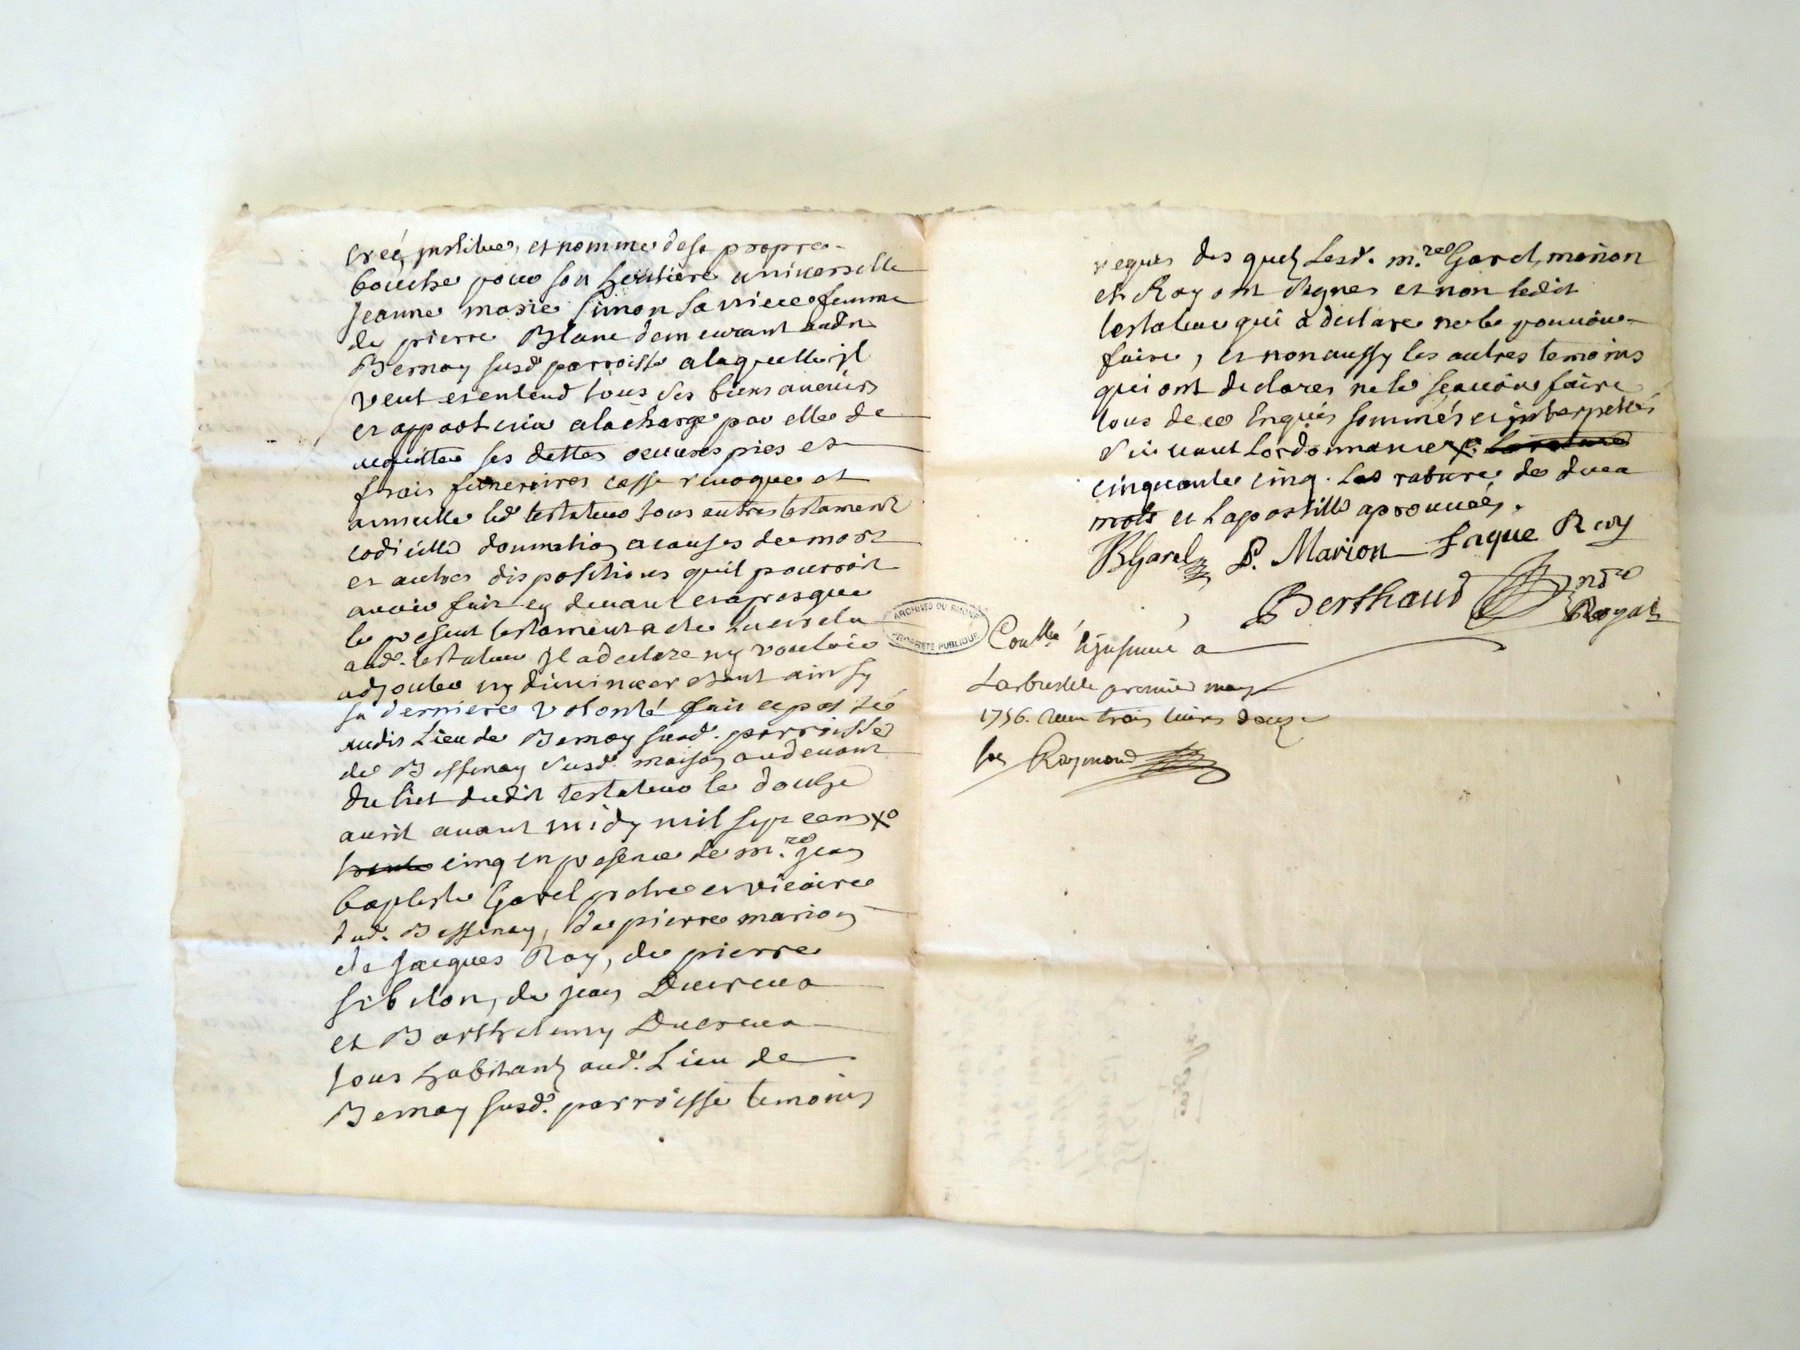 créé, institue, et nomme de sa propre
bouche pour son heritiere universelle
Jeanne marie Simon sa niece femme
de pierre Blanc demeurant aud.
Bernay susd. parroisse a laquelle il
veut et entend tous ses biens avenir
et appartenir a la charge par elle de
aquitter ses dettes oeuvres pies et
frais funeraires casse revoque et
annulle led. testateur tous autres testament
codicille donnation a causes de mort
et autres dispositions quil pourroit
avoir fait cy devant et apres que
le present testament a ete lu et relu
aud. testateur Il a declare ny vouloir
adjouter ny diminuer etant ainsy
sa derniere volonté fait et passé
audit Lieu de Bernay susd. parroisse
de Bessenay susd. maison au devant
du lict dudit testateur le douze
avril avant midy mil sept cens
cinq en presence de m.re jean
baptiste Garel pretre et vicaire
dud. Bessenay, de pierre marion
de jacques Roy, de pierre
Sibelon, de jean Ducreux
et Barthelemy Ducreux
tous habitants aud. Lieu de
Bernay susd. parroisse temoins
requis des quels lesd. m.re Garel, marion
et Roy ont signes et non ledit
testateur qui a declare ne le pouvoir
faire, et non aussy les autres temoins
qui ont declares ne le scavoir faire
tous de ce Enquis sommés et interpellés
suivant Lordonnance
cinquante cinq. Les rature de deux
mots et Lapostille aprouvés.
BGarel P. Marion Jaque Roy
Berthaud n.re
Royal
ARCHIVES DU RHÔNE
PROPRIÉTÉ PUBLIQUE
Con.llé & insinué a
Larbresle premier may
1756. Reçu trois livres douze
sols Raymond